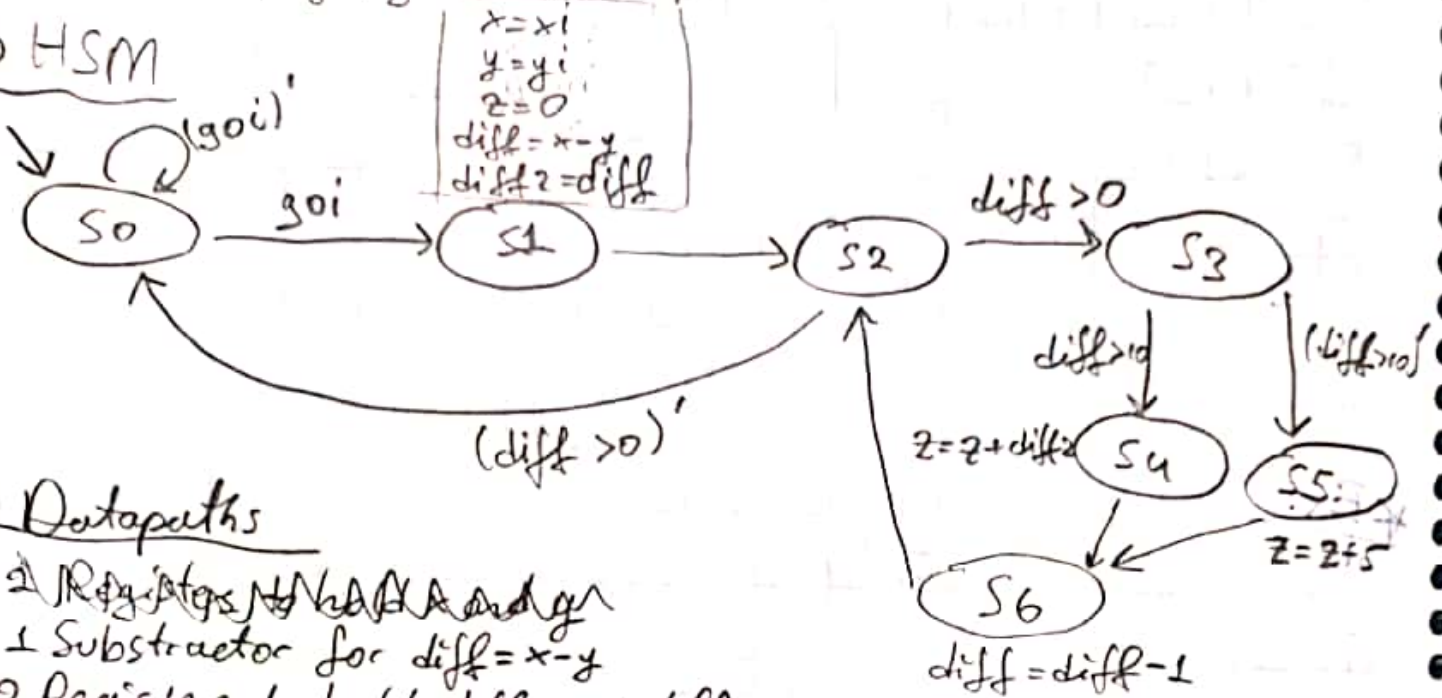 HSM
x=xi
y=yi
z=0
diff=x-y
diff2=diff
(goi)'
S0
goi
S1
S2
diff>0
S3
diff>10
(diff>10)'
(diff>0)'
z=z+diff2
S4
S5
z=z+5
S6
diff=diff-1
Datapaths
1 Substractor for diff=x-y